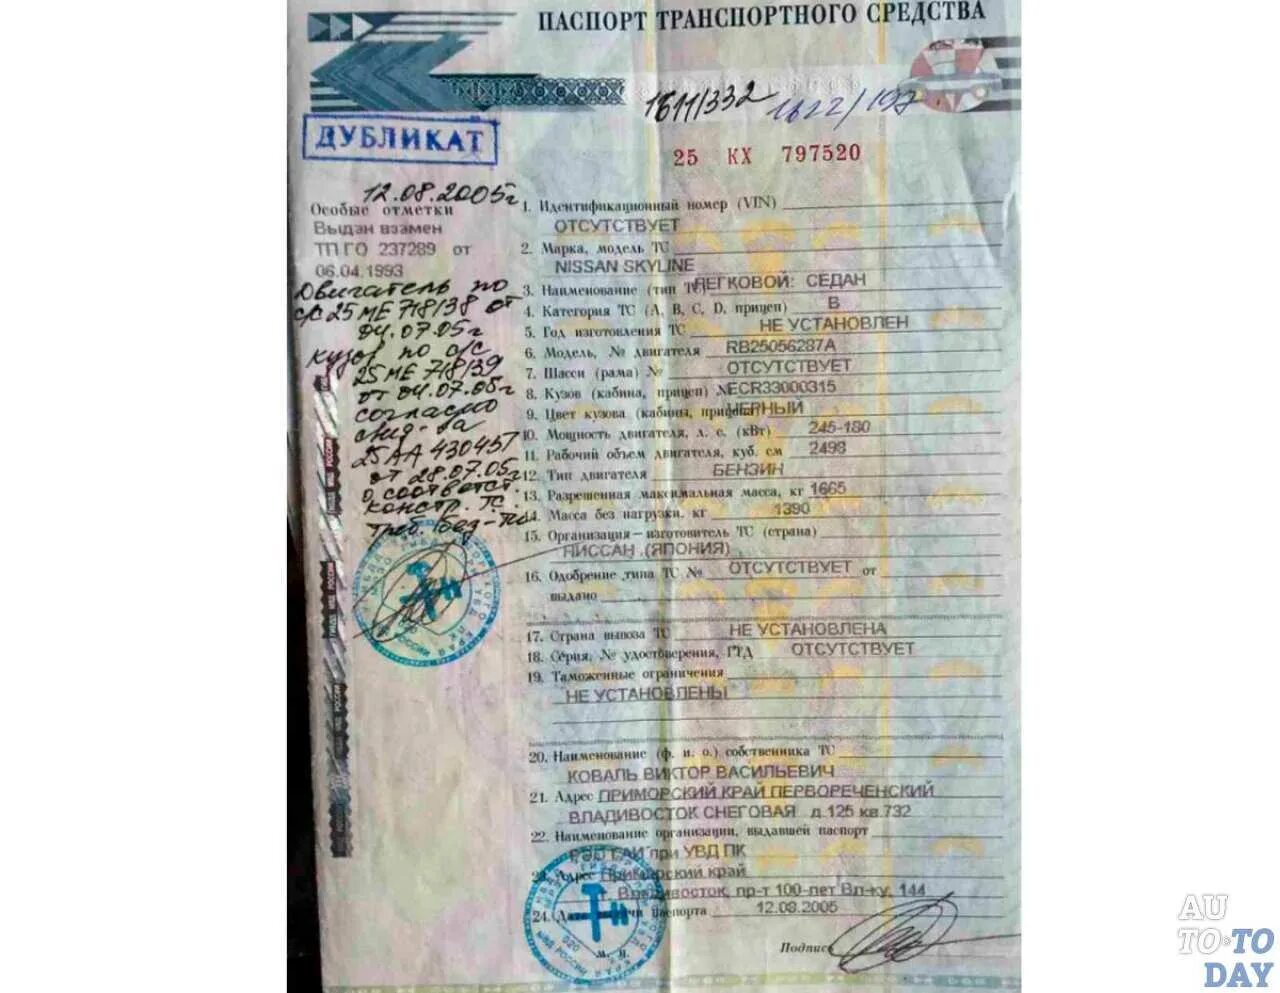 ПАСПОРТ ТРАНСПОРТНОГО СРЕДСТВА
1611/332 1622/197
ДУБЛИКАТ
25 КХ 797520
12.08.2005г
Особые отметки
Выдан взамен
ТП ГО 237289 от
06.04.1993
Двигатель по
с/с 25 МЕ 718138 от
04.07.05г
кузов по с/с
25 МЕ 718139
от 04.07.05г
согласно
свид-ва
25 АА 430457
от 28.07.05г
о соответст.
констр. ТС
треб. без-ти
1. Идентификационный номер (VIN)
ОТСУТСТВУЕТ
2. Марка, модель ТС
NISSAN SKYLINE
3. Наименование (тип ТС) ЛЕГКОВОЙ: СЕДАН
4. Категория ТС (А, В, С, D, прицеп) В
5. Год изготовления ТС НЕ УСТАНОВЛЕН
6. Модель, № двигателя RB25056287A
7. Шасси (рама) № ОТСУТСТВУЕТ
8. Кузов (кабина, прицеп) № ECR33000315
9. Цвет кузова (кабины, прицепа) ЧЕРНЫЙ
10. Мощность двигателя, л. с. (кВт) 245-180
11. Рабочий объем двигателя, куб. см 2498
12. Тип двигателя БЕНЗИН
13. Разрешенная максимальная масса, кг 1665
14. Масса без нагрузки, кг 1390
15. Организация—изготовитель ТС (страна)
НИССАН (ЯПОНИЯ)
16. Одобрение типа ТС № ОТСУТСТВУЕТ от
выдано
17. Страна вывоза ТС НЕ УСТАНОВЛЕНА
18. Серия, № удостоверения, ГТД ОТСУТСТВУЕТ
19. Таможенные ограничения
НЕ УСТАНОВЛЕНЫ
20. Наименование (ф. и. о.) собственника ТС
КОВАЛЬ ВИКТОР ВАСИЛЬЕВИЧ
21. Адрес ПРИМОРСКИЙ КРАЙ ПЕРВОРЕЧЕНСКИЙ
ВЛАДИВОСТОК СНЕГОВАЯ д.125 кв.732
22. Наименование организации, выдавшей паспорт
ГАИ при УВД ПК
23. Адрес Приморский край
г. Владивосток, пр-т 100-лет Вл-ку, 144
24. Дата выдачи паспорта 12.08.2005
М. П.
Подпись
AU
TO TO
DAY